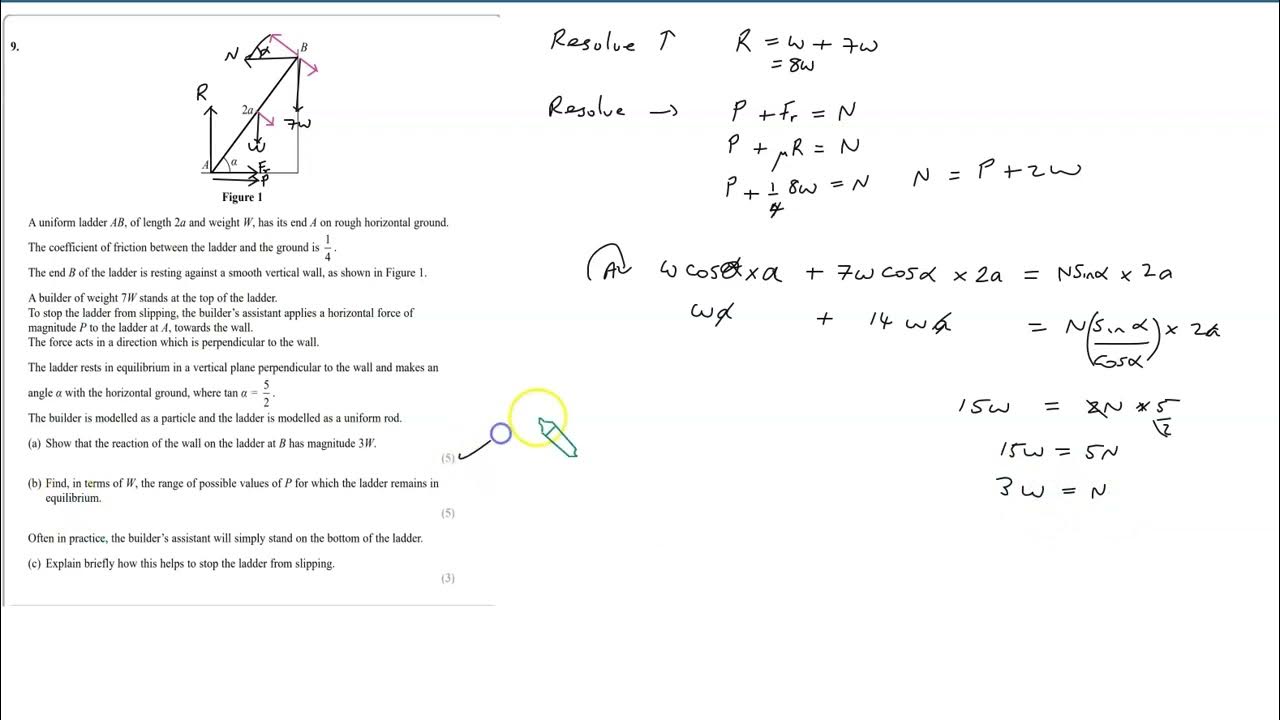 9.
N α B
R
2a
7W
W
A α Fr
P
Figure 1
A uniform ladder AB, of length 2a and weight W, has its end A on rough horizontal ground.
The coefficient of friction between the ladder and the ground is 1/4.
The end B of the ladder is resting against a smooth vertical wall, as shown in Figure 1.
A builder of weight 7W stands at the top of the ladder.
To stop the ladder from slipping, the builder's assistant applies a horizontal force of
magnitude P to the ladder at A, towards the wall.
The force acts in a direction which is perpendicular to the wall.
The ladder rests in equilibrium in a vertical plane perpendicular to the wall and makes an
angle α with the horizontal ground, where tan α = 5/2.
The builder is modelled as a particle and the ladder is modelled as a uniform rod.
(a) Show that the reaction of the wall on the ladder at B has magnitude 3W.
(5)
(b) Find, in terms of W, the range of possible values of P for which the ladder remains in
equilibrium.
(5)
Often in practice, the builder's assistant will simply stand on the bottom of the ladder.
(c) Explain briefly how this helps to stop the ladder from slipping.
(3)
Resolve ↑ R = W + 7W
= 8W
Resolve → P + Fr = N
P + μR = N
P + 1/4 8W = N N = P + 2W
A W cosα × a + 7W cosα × 2a = N sinα × 2a
Wa + 14 Wa = N (sin α/cosα) × 2a
15W = 2N × 5/2
15W = 5N
3W = N